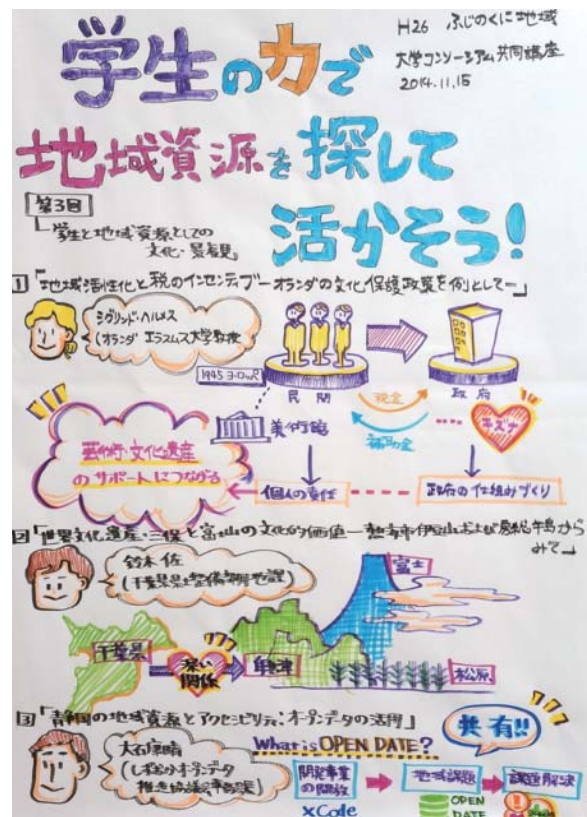 学生の力で
H26 ふじのくに地域
大学コンソーシアム共同講座
2014.11.15
地域資源を探して
活かそう!
第3回
学生と地域資源としての
文化・景観
1 「地域活性化と税のインセンティブーオランダの文化保護政策を例としてー」
シグリンド・ヘルメス
(オランダ エラスムス大学教授
1945 ヨーロッパ
民間
政府
税金
補助金
キズナ
美術館
芸術・文化遺産
のサポートにつながる
個人の責任
政府の仕組みづくり
2 「世界文化遺産・三保と富士山の文化的価値ー熱海市伊豆山および房総半島から
みてー」
鈴木 佐
(千葉県
千葉県
深い
関係
富士
松原
3 「静岡の地域資源とアクセシビリティ:オープンデータの活用」
大石康晴
(しずおかオープンデータ
推進協議会事務局
What is OPEN DATE?
共有!!
開発事業
の開放
地域課題
課題解決
×Code
OPEN
DATE